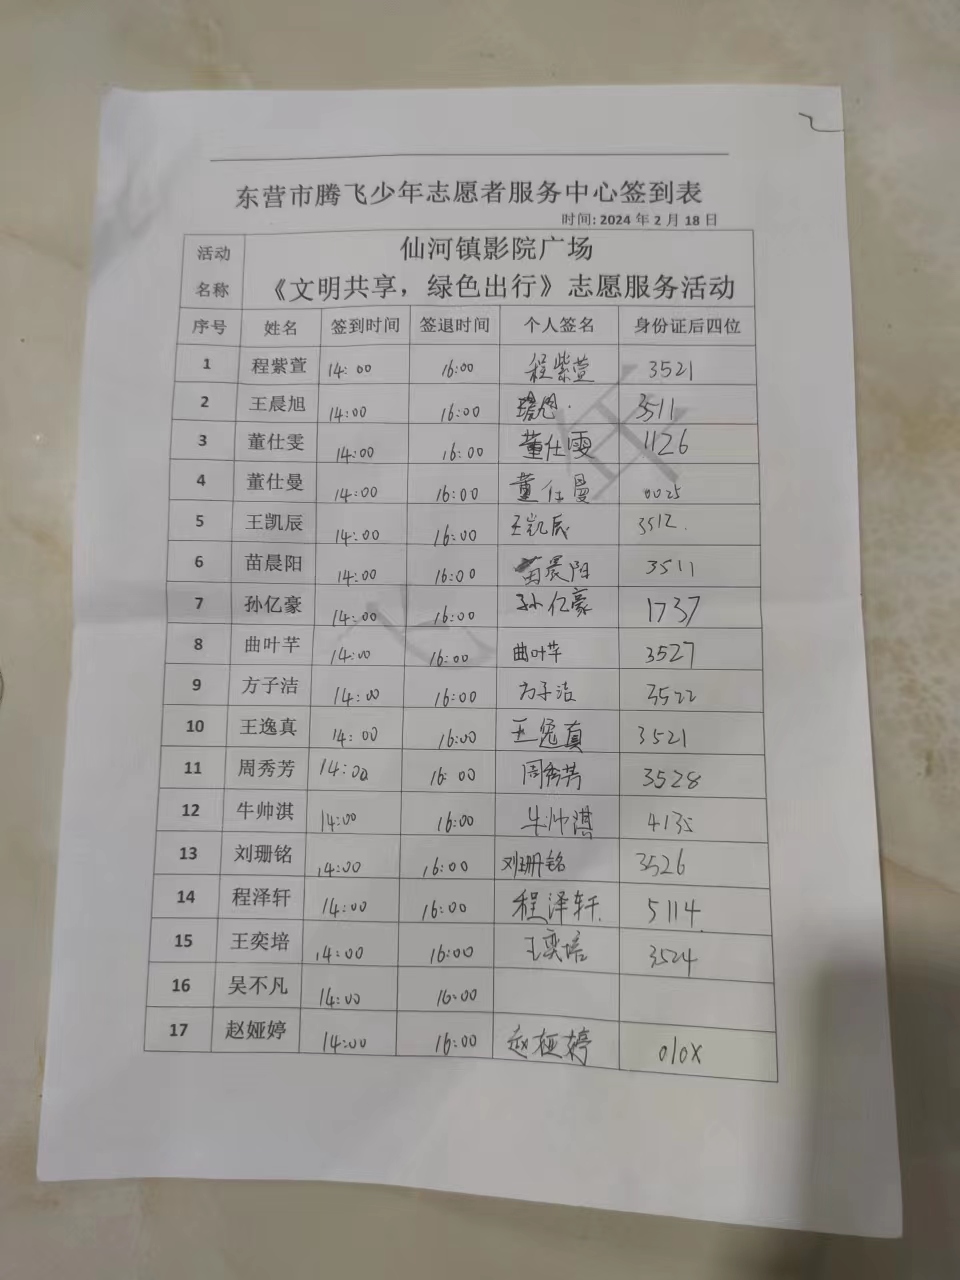 东营市腾飞少年志愿者服务中心签到表
时间: 2024 年 2 月 18 日
活动名称 仙河镇影院广场
《文明共享，绿色出行》志愿服务活动
序号 姓名 签到时间 签退时间 个人签名 身份证后四位
1 程紫萱 14:00 16:00 程紫萱 3521
2 王晨旭 14:00 16:00 3511
3 董仕雯 14:00 16:00 董仕雯 1126
4 董仕曼 14:00 16:00 董仕曼 0025
5 王凯辰 14:00 16:00 王凯辰 3512.
6 苗晨阳 14:00 16:00 苗晨阳 3511
7 孙亿豪 14:00 16:00 孙亿豪 1737
8 曲叶芊 14:00 16:00 曲叶芊 3527
9 方子洁 14:00 16:00 方子洁 3522
10 王逸真 14:00 16:00 王逸真 3521
11 周秀芳 14:00 16:00 周秀芳 3528
12 牛帅淇 14:00 16:00 牛帅淇 4135
13 刘珊铭 14:00 16:00 刘珊铭 3526
14 程泽轩 14:00 16:00 程泽轩. 5114
15 王奕培 14:00 16:00 王奕培 3524
16 吴不凡 14:00 16:00
17 赵娅婷 14:00 16:00 赵娅婷 010X
飞 年